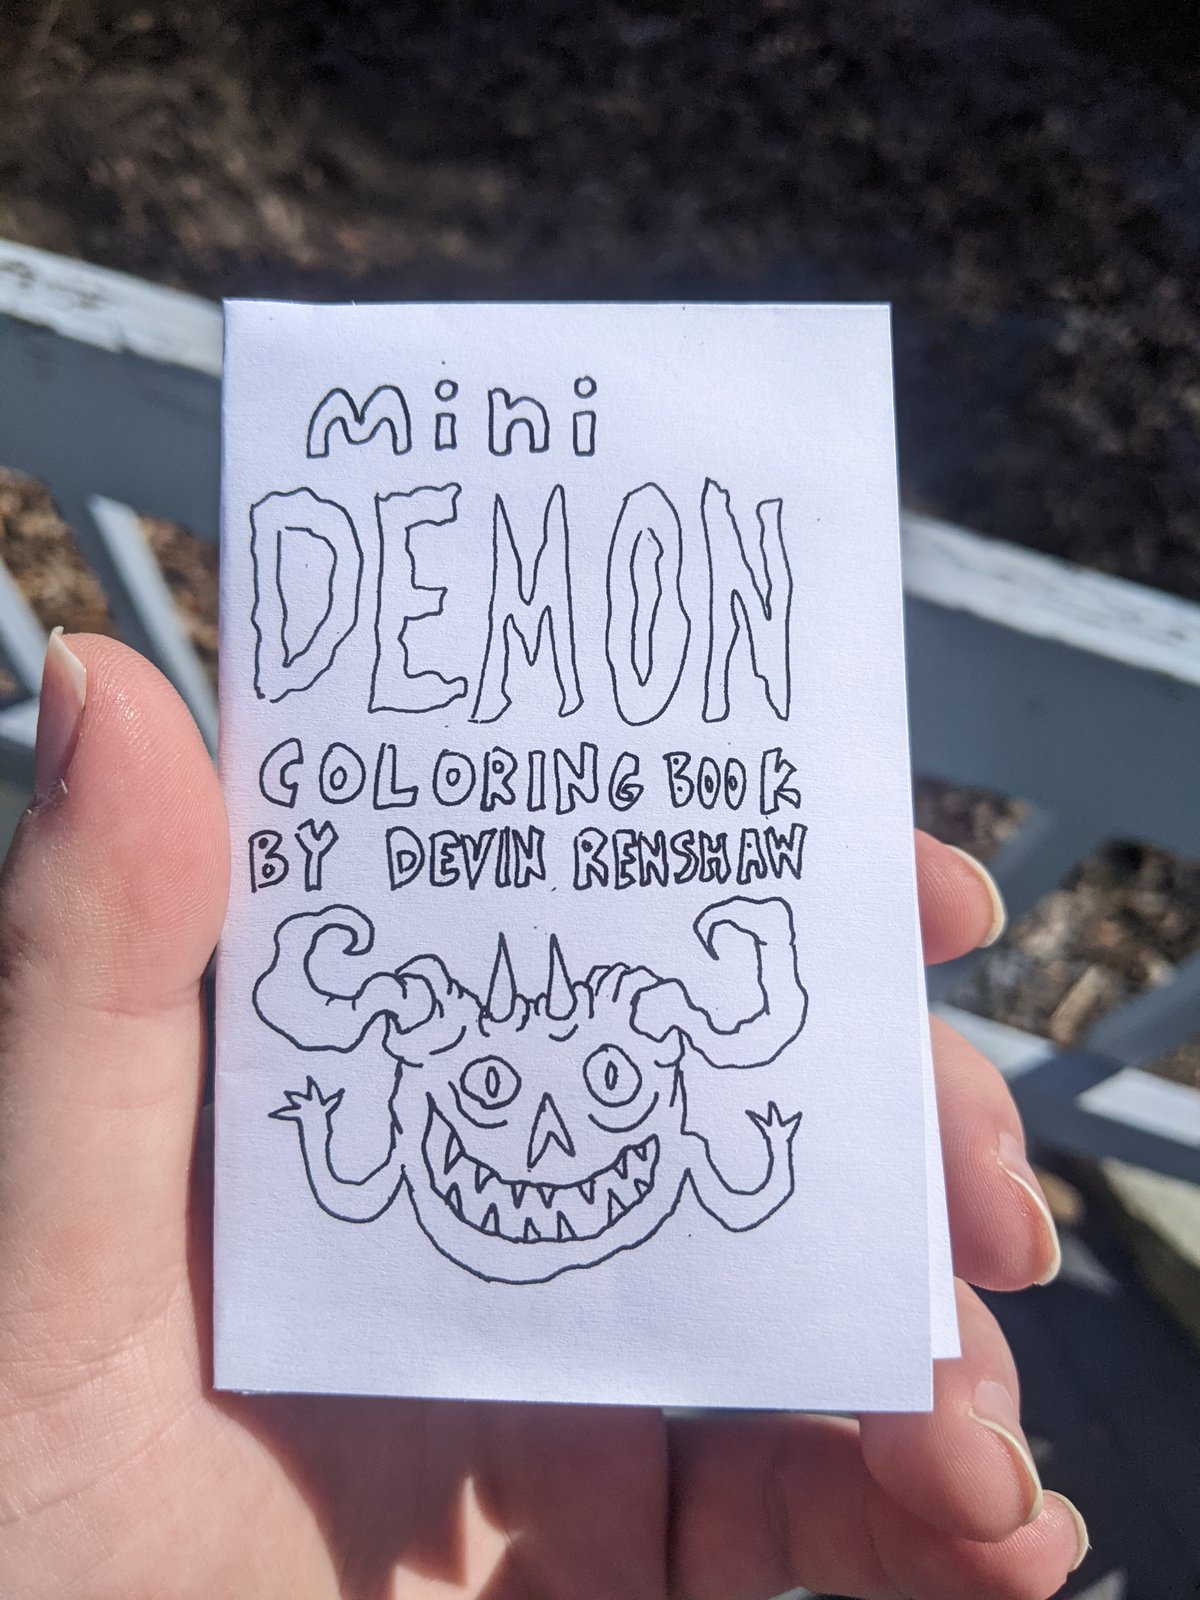 mini
DEMON
COLORING BOOK
BY DEVIN RENSHAW